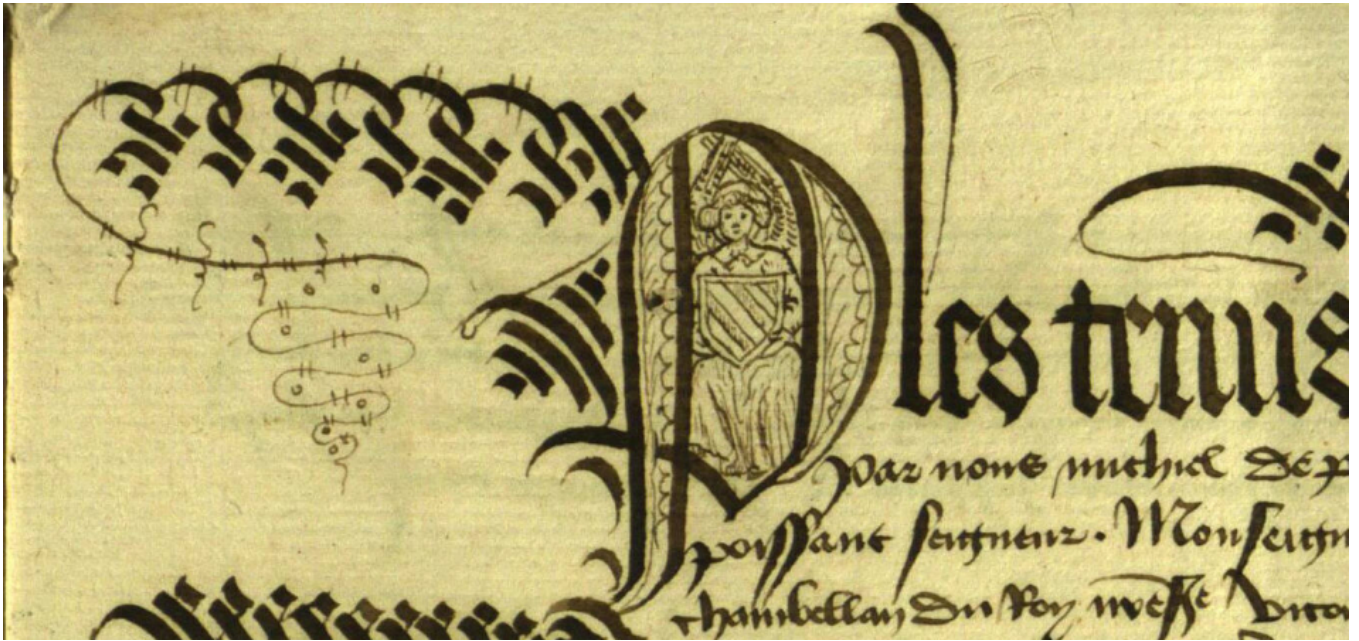 Ples tenus
par nous michiel de p
poissant seigneur. Monseign
chambellan du Roy nre